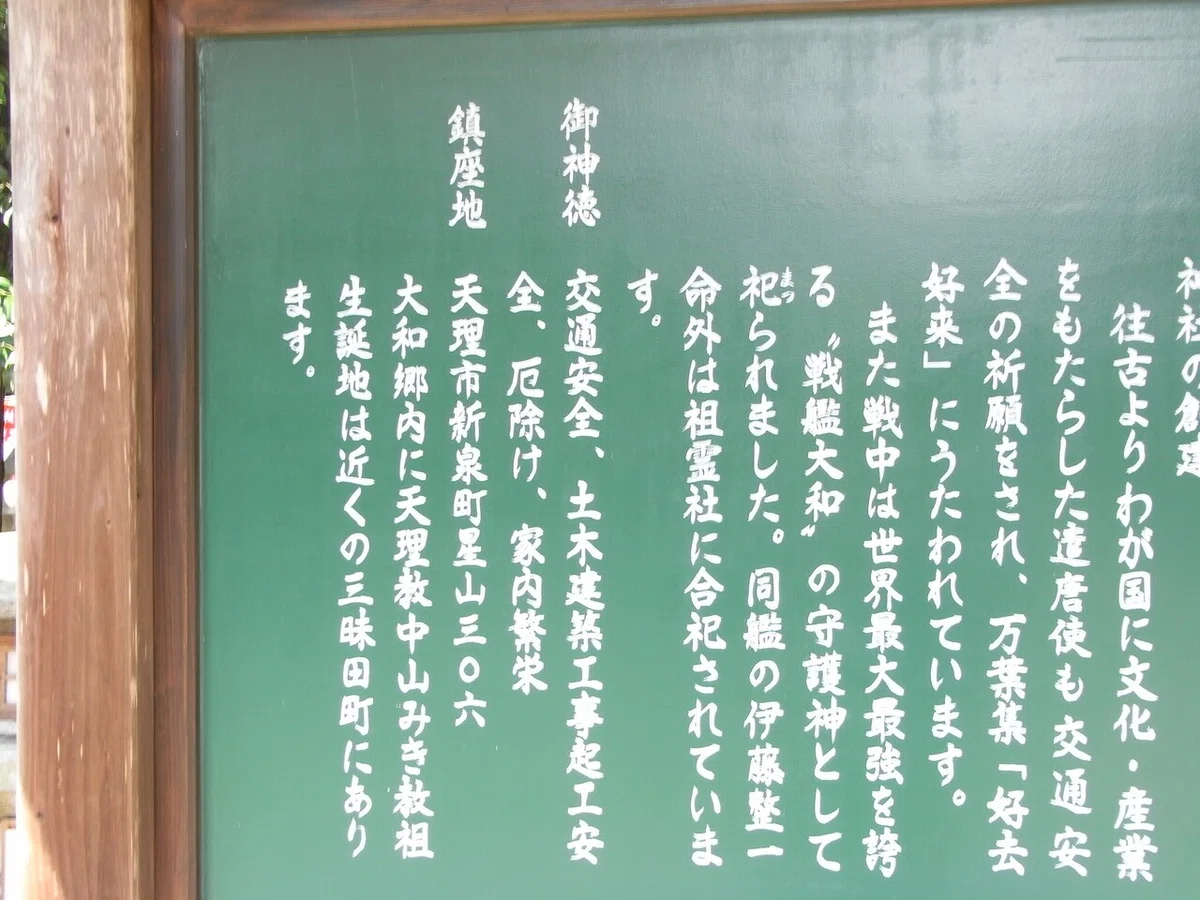 神社の創建
往古よりわが国に文化・産業
をもたらした遣唐使も交通安
全の祈願をされ、万葉集「好去
好来」にうたわれています。
また戦中は世界最大最強を誇
る〝戦艦大和〟の守護神として
祀られました。同艦の伊藤整一
まつ
命外は祖霊社に合祀されていま
す。
御神徳 交通安全、土木建築工事起工安
全、厄除け、家内繁栄
鎮座地 天理市新泉町星山三〇六
大和郷内に天理教中山みき教祖
生誕地は近くの三昧田町にあり
ます。